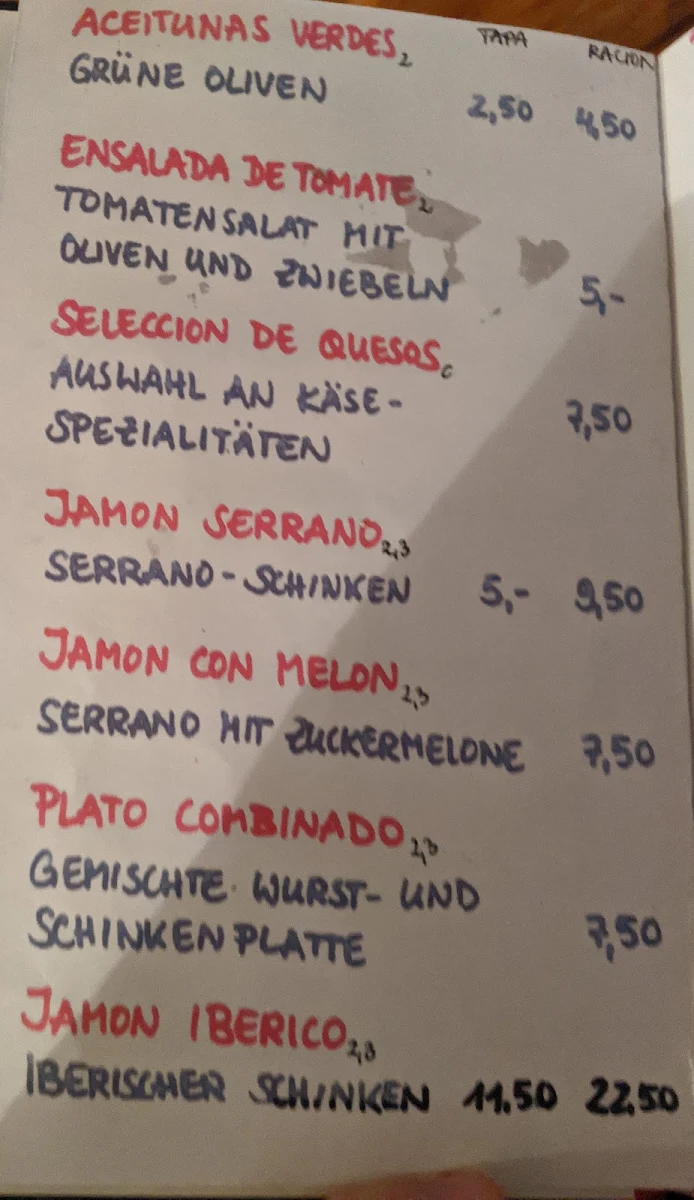 TAPA RACION
ACEITUNAS VERDES2
GRÜNE OLIVEN 2,50 4,50
ENSALADA DE TOMATE2
TOMATENSALAT MIT
OLIVEN UND ZWIEBELN 5,-
SELECCION DE QUESOSC
AUSWAHL AN KÄSE-
SPEZIALITÄTEN 7,50
JAMON SERRANO2,3
SERRANO-SCHINKEN 5,- 9,50
JAMON CON MELON2,3
SERRANO MIT ZUCKERMELONE 7,50
PLATO COMBINADO2,3
GEMISCHTE WURST- UND
SCHINKENPLATTE 7,50
JAMON IBERICO2,3
IBERISCHER SCHINKEN 11.50 22.50